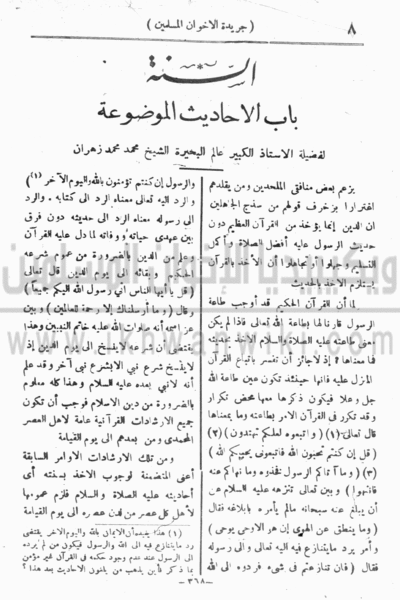 ( جريدة الاخوان المسلمين )
٨
السنة
باب الاحاديث الموضوعة
لفضيلة الاستاذ الكبير عالم البحيرة الشيخ محمد محمد زهران
يزعم بعض منافقي الملحدين ومن يقلدهم
اغترارا بزخرف قولهم من سذج الجاهلين
ان الدين إنما يؤخذ من القرآن العظيم دون
حديث الرسول عليه أفضل الصلاة وأكمل
التسليم وجهلوا أو تجاهلوا أن الأخذ بالقرآن
يستلزم الاخذ بالحديث
لما أن القرآن الحكيم قد أوجب طاعة
الرسول قارنا لها بطاعة الله تعالى فاذا لم يكن
معنى طاعته عليه الصلاة والسلام الاخذ بحديثه
فما معناها؟ إذ لا جائز أن تفسر باتباع القرآن
المنزل عليه فانها حينئذ تكون عين طاعة الله
جل وعلا فيكون ذكرها معها محض تكرار
وقد تكرر في القرآن الامر بطاعته وما بمعناها
قال تعالى (١) ( واتبعوه لعلكم تهتدون ) (٢)
( قل إن كنتم تحبون الله فاتبعوني يحببكم الله )
(٣) ( وما آتاكم الرسول فخذوه وما نهاكم عنه
فانتهوا ) وبين تعالى تنزهه عليه السلام عن
أن يبلغ عنه سبحانه مالم يأمره بابلاغه فقال
( وما ينطق عن الهوى إن هو الا وحي يوحى )
وأمر برد مايتنازع فيه اليه تعالى والى رسوله
فقال ( فان تنازعتم في شيء فردوه الى الله
والرسول إن كنتم تؤمنون بالله واليوم الآخر (١)
والرد اليه تعالى معناه الرد الى كتابه . والرد
الى رسوله معناه الرد الى حديثه دون فرق
بين عهدي حياته ووفاته لما دل عليه القرآن
وعلم من الدين بالضرورة من عموم شرعه
الحكيم وبقائه الى يوم الدين قال تعالى
( قل يا أيها الناس اني رسول الله اليكم جميعا )
وقال ( وما أرسلناك إلا رحمة للعالمين ) وبين
عز اسمه أنه صلوات الله عليه خاتم النبيين وهذا
يقتضي أن شرعه لاينسخ الى يوم الدين إذ
لاينسخ شرع نبي الا بشرع نبي آخر وقد علم
أنه لانبي بعده عليه السلام وهذا كله معلوم
بالضرورة من دين الاسلام فوجب أن تكون
جميع الارشادات القرآنية عامة لاهل العصر
المحمدي ومن بعدهم الى يوم القيامة
ومن تلك الارشادات الاوامر السابقة
أعني المتضمنة لوجوب الاخذ بسنته أي
أحاديثه عليه الصلاة والسلام فلزم عمومها
لأهل كل عصر من لدن عصره الى يوم القيامة
(١) هذا يفيد أن الايمان بالله واليوم الآخر يقتضي
رد مايتنازع فيه الى الله والرسول فيكون من لم يرده
الى الرسول عند عدم وجود حكمه في القرآن غير مؤمن
بما ذكر فأين يذهب من يلغون الاحاديث بعد هذا ؟
— ٣٦٨ —